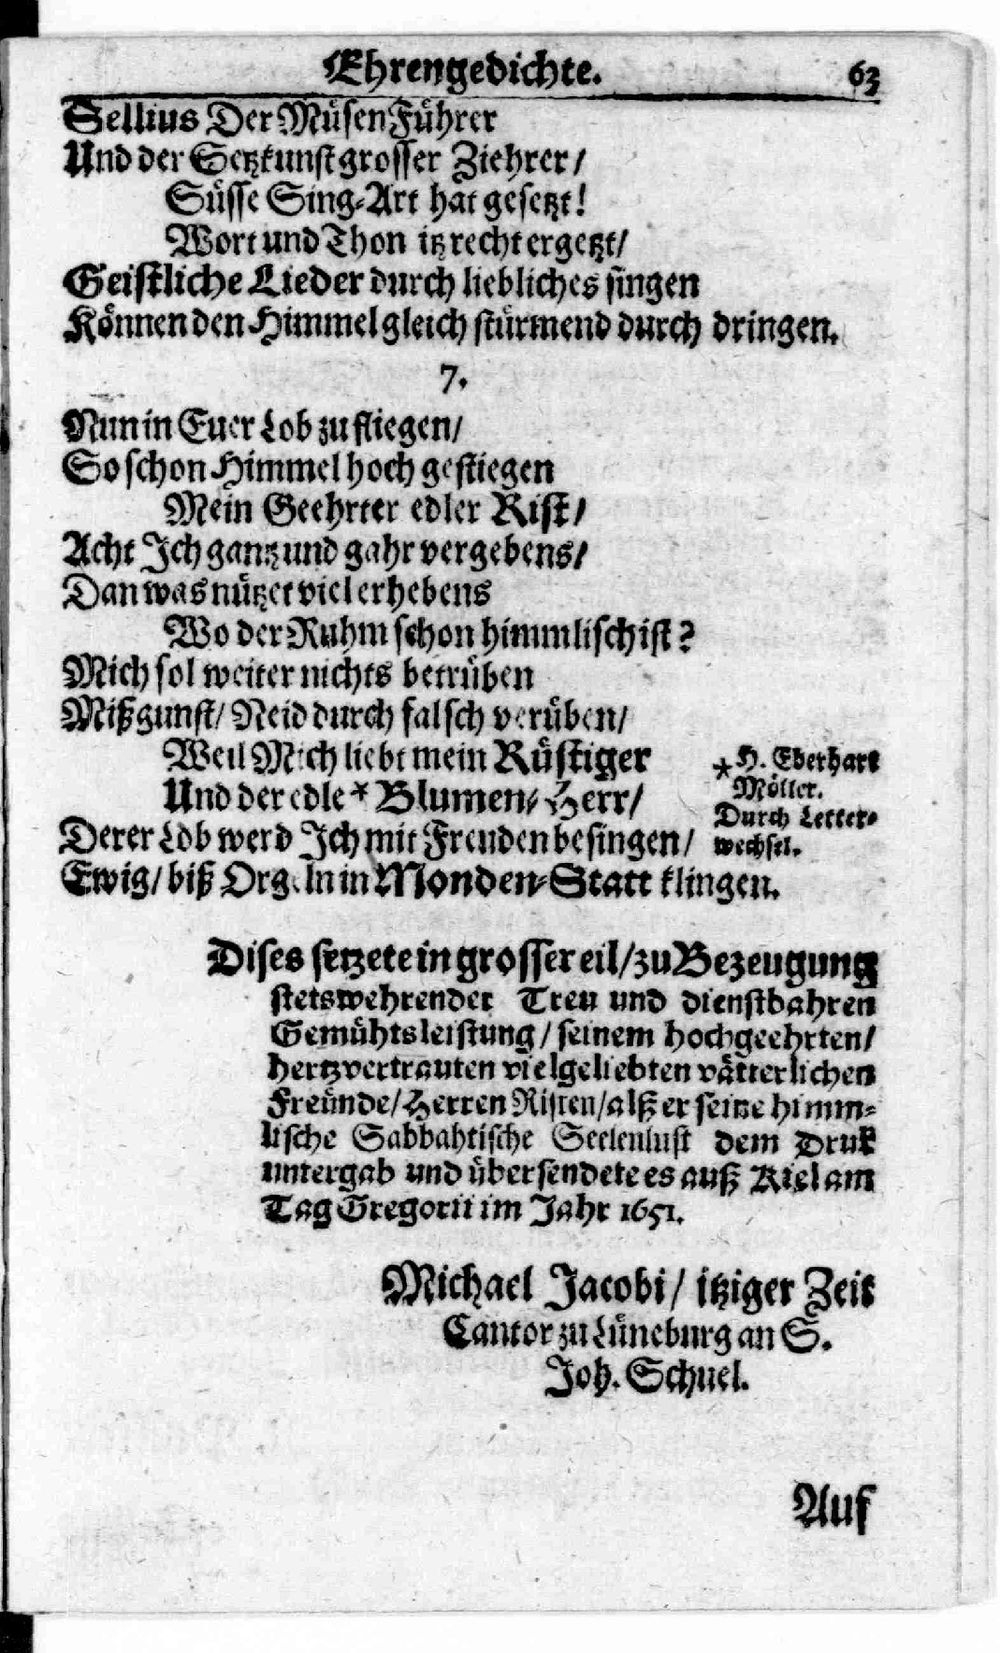 Ehrengedichte. 63
Sellius Der Müsen Führer
Und der Setzkunst grosser Ziehrer/
Süsse Sing-Art hat gesetzt!
Wort und Thon itz recht ergetzt/
Geistliche Lieder durch liebliches singen
Können den Himmel gleich stürmend durch dringen.
7.
Nun in Euer Lob zu fliegen/
So schon Himmel hoch gestiegen
Mein Geehrter edler Rist/
Acht Ich gantz und gahr vergebens/
Dan was nützet viel erhebens
Wo der Ruhm schon himmlisch ist?
Mich sol weiter nichts betrüben
Mißgunst/ Neid durch falsch verüben/
Weil Mich liebt mein Rüstiger
Und der edle * Blumen-Herr/
Derer Lob werd Ich mit Freuden besingen/
Ewig/ biß Orgeln in Monden-Statt klingen.
* H. Eberhart
Möller.
Durch Letter-
wechsel.
Dises setzete in grosser eil/ zu Bezeugung
stetswehrender Treu und dienstbahren
Gemühtsleistung/ seinem hochgeehrten/
hertzvertrauten vielgeliebten vätterlichen
Freünde/ Herren Risten/ alß er seine himm-
lische Sabbahtische Seelenlust dem Druk
untergab und übersendete es auß Kiel am
Tag Gregorii im Jahr 1651.
Michael Jacobi/ itziger Zeit
Cantor zu Lüneburg an S.
Joh. Schuel.
Auf